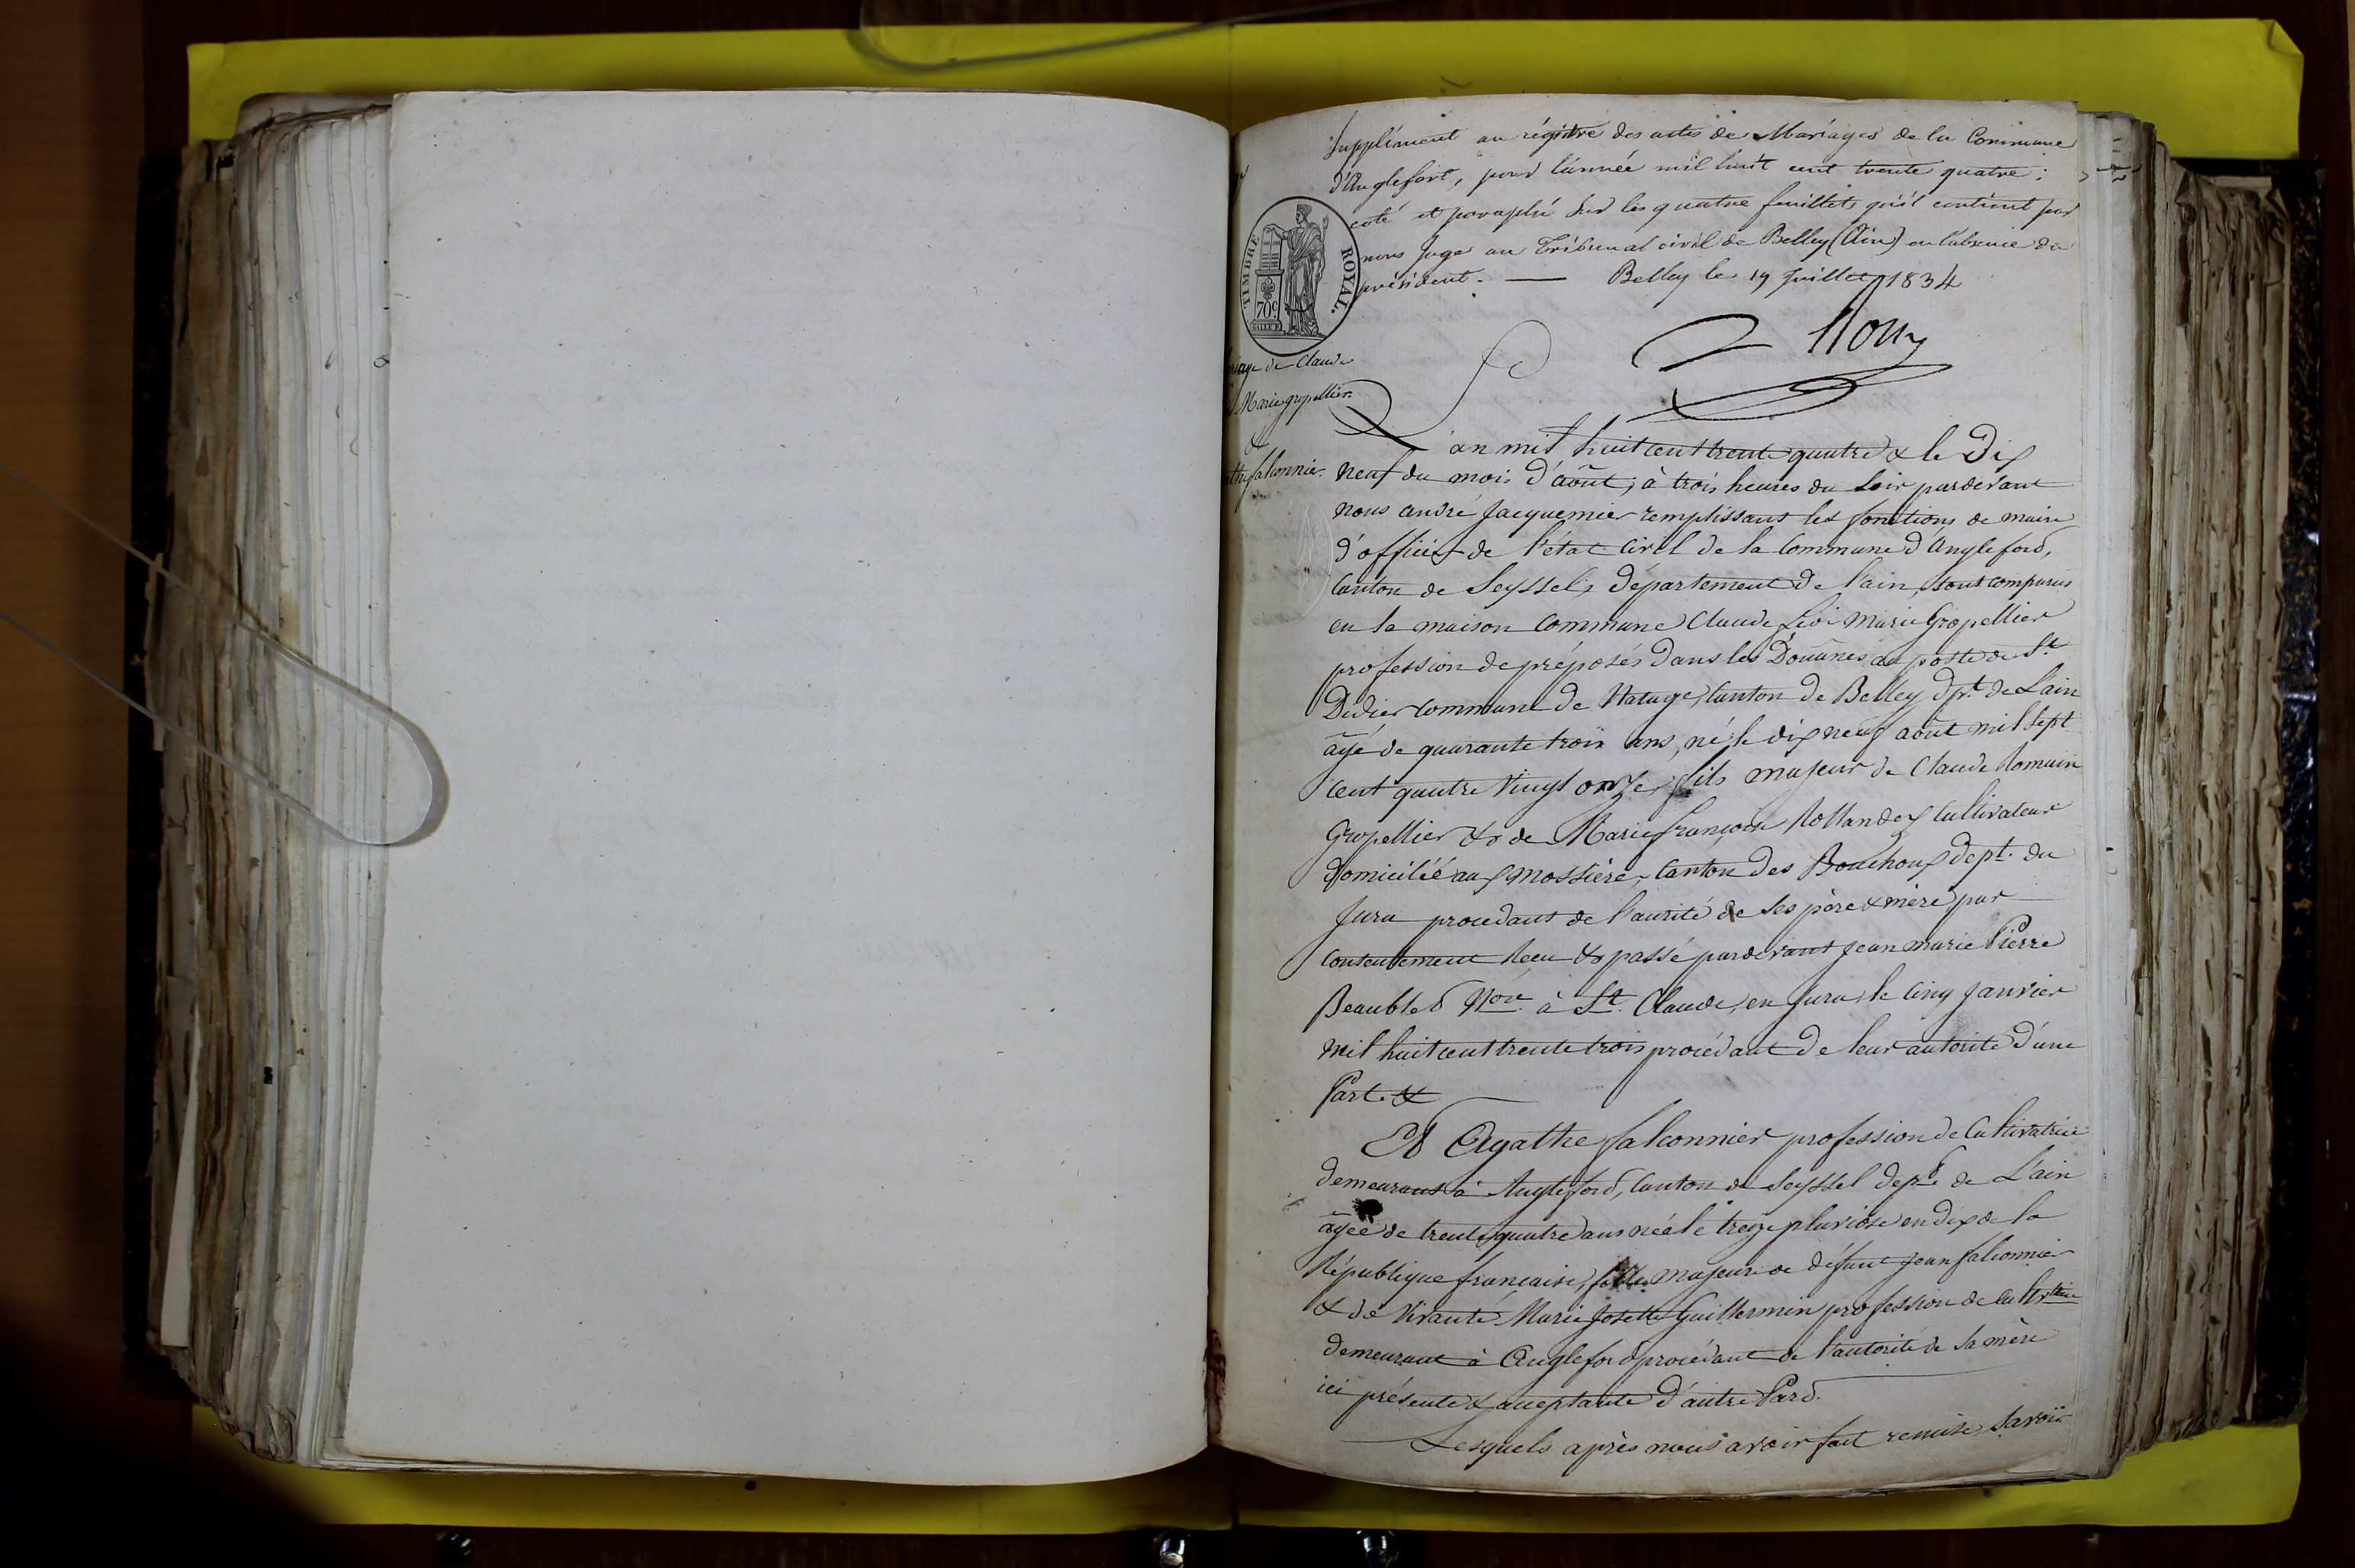 Supplément au régistre des actes de Mariages de la Commune
d'Anglefort, pour l'année mil huit cent trente quatre;
coté et paraphé sur les quatre feuillets qu'il contient par
nous Juge au Tribunal civil de Belley (Ain) en l'absence du
président. — Belley le 19 Juillet 1834
TIMBRE ROYAL.
70c
riage de Claude
Marie gropellier
&
athe falconnier
L'an mil huit cent trente quatre & le Dix
neuf du mois d'août, à trois heures du Soir pardevant
nous andré Jacquemier remplissant les fonctions de maire
d'officier de l'état Civil de la Commune d'Angleford,
Canton de Seyssel, département de l'ain, sont comparus
en la maison Commune Claude Marie Gropellier
profession de préposés dans les Douanes au poste de St
Didier Commune de Natage, Canton de Belley Dpt de Lain
âgé de quarante trois ans, né le dix neuf août mil sept
cent quatre vingt onze, fils majeur de Claude Romain
Gropellier & de Marie françoise Rollandez Cultivateur
domicilié aux mossière, Canton des Bouchoux dept. du
Jura procedant de l'aurité de ses père & mère par
Consentement Recu & passé pardevant Jean marie Pierre
Beaubled Nore à St. Claude, en Jura, le cinq Janvier
mil huit cent trente trois procédant de leur autorité d'une
Part. &
Et Agathe falconnier profession de Cultivatrice
demeurant à Angleford, Canton de Seyssel dept de Lain
âgée de trente quatre ans née le treize pluviose en dix de la
République française, fille majeure de défunt Jean falconnier
& de vivante Marie Josette Guillermin profession de cultivatrice
demeurant à Angleford procédant de l'autorité de sa mère
ici présente & acceptante d'autre Pard.
Lesquels après nous avoir fait remise Savoir